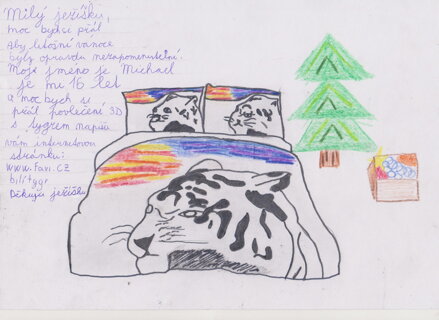 Milý ježíšku,
moc bych si přál
aby letošní vánoce
byly opravdu nezapomenutelné.
Moje jméno je Michael
je mi 16 let
a moc bych si
přál povlečení 3D
s tygrem napíšu
vám internetovou
stránku:
www.favi.cz
bílí tygr
Děkuju ježíšku